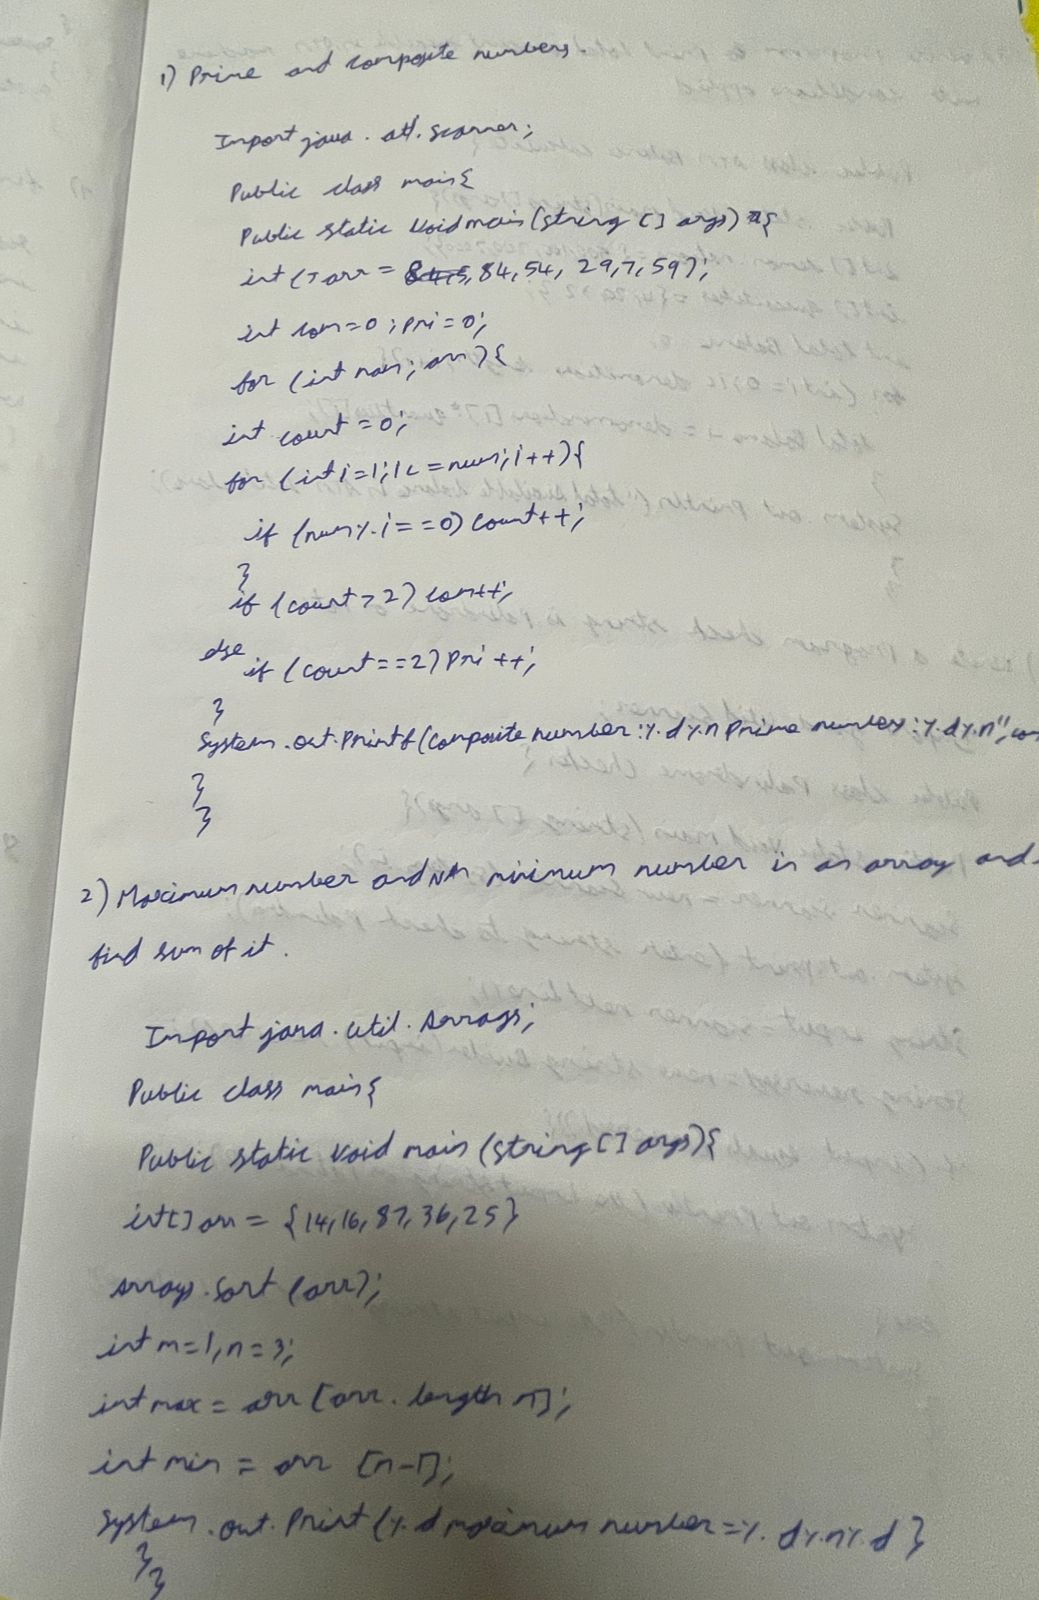 1) Prime and composite numbers.
Import java . util. scanner;
Public class main{
Public static void main (string [] args) {
int [] arr = 84, 54, 29, 7, 59};
int com=0 ; pri=0;
for (int num; arr ) {
int count = 0;
for (int i=1; i<=num; i++){
if (num%i==0) count++;
}
if (count>2) com++;
else if (count==2) pri++;
}
System.out.Printf(Composite number:%d%n Prime number:%d%n", com
}
}
2) Maximum number and minimum number in an array and
find sum of it.
Import java. util. Arrays;
Public class main{
Public static void main (string [] args){
int[] arr = {14,16,87,36,25}
Arrays.sort (arr);
int m=1, n=3;
int max = arr [arr. length
int min = arr [n-1];
System.out. Print (%d maximum number=%d%n%d }
}
}